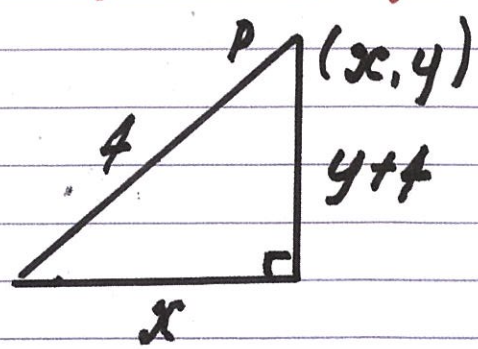 P (x, y)
4
y+4
x